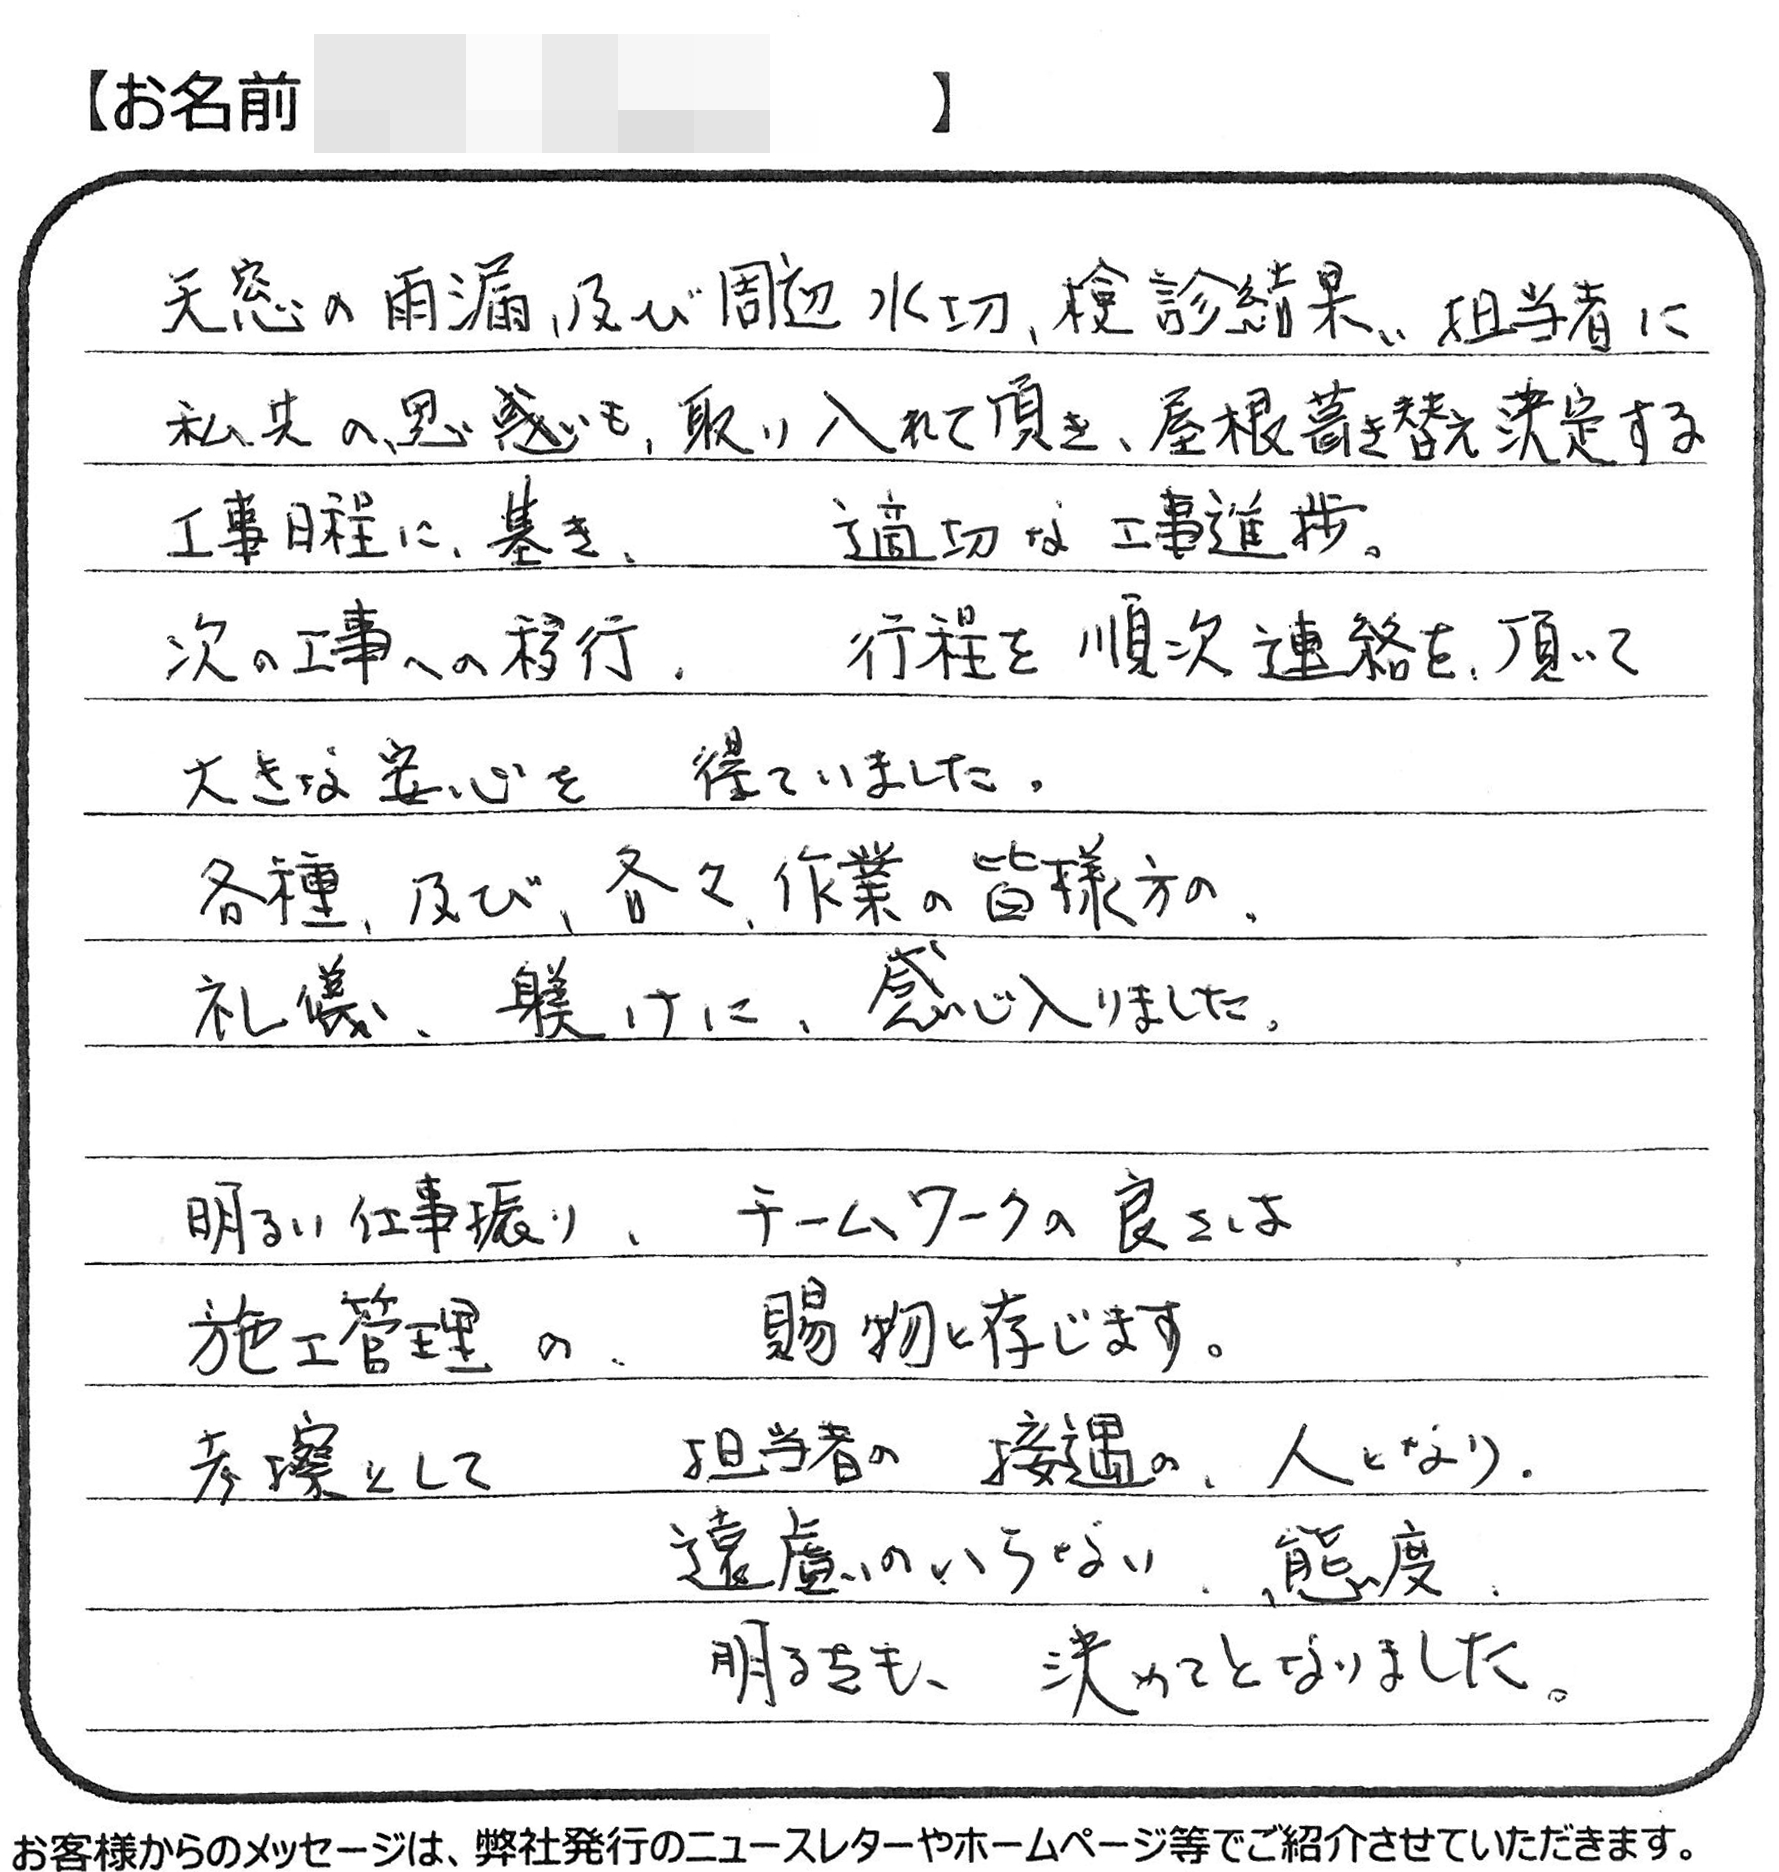 【お名前 】
天窓の雨漏、及び周辺水切、検診結果、担当者に
私共の思惑も、取り入れて頂き、屋根葺き替え決定する
工事日程に、基き、 適切な工事進捗。
次の工事への移行、 行程を順次連絡を、頂いて
大きな安心を 得ていました。
各種、及び、各々、作業の皆様方の、
礼儀、躾けに、感じ入りました。
明るい仕事振り、 チームワークの良さは
施工管理の、 賜物と存じます。
考擦として 担当者の接遇の、人となり、
遠慮のいらない、態度、
明るさも、 決めてとなりました。
お客様からのメッセージは、弊社発行のニュースレターやホームページ等でご紹介させていただきます。